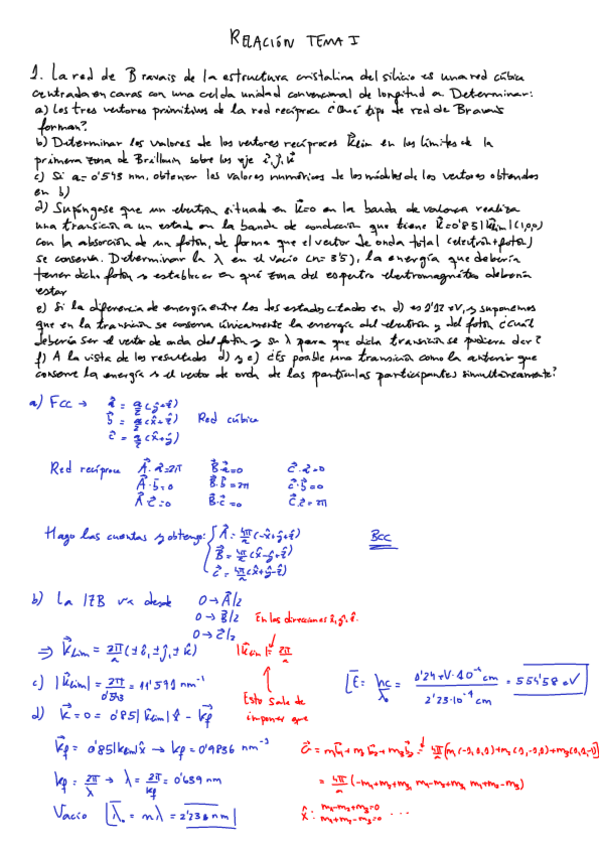 RELACIÓN TEMA I
1. La red de Bravais de la estructura cristalina del silicio es una red cúbica
centrada en caras con una celda unidad convencional de longitud a Determinar:
a) Los tres vectores primitivos de la red recíproca ¿Qué tipo de red de Bravais
forman?
b) Determinar los valores de los vectores recíprocos K⃗lim en los límites de la
primera zona de Brillouin sobre los eje î, ĵ, k̂
c) Si a = 0'543 nm, obtener los valores numéricos de los módulos de los vectores obtenidos
en b)
d) Supóngase que un electrón situado en K⃗=0 en la banda de valencia realiza
una transición a un estado en la banda de conducción que tiene K⃗=0'85|K⃗lim|(1,0,0)
con la absorción de un fotón, de forma que el vector de onda total (electrón+fotón)
se conserva. Determinar la λ en el vacío (n=3'5), la energía que debería
tener dicho fotón y establecer en qué zona del espectro electromagnético debería
estar
e) Si la diferencia de energía entre los dos estados citados en d) es 1'12 eV, y suponemos
que en la transición se conserva únicamente la energía del electrón y del fotón ¿cuál
debería ser el vector de onda del fotón y su λ para que dicha transición se pudiera dar?
f) A la vista de los resultados d) y e) ¿Es posible una transición como la anterior que
conserve la energía y el vector de onda de las partículas participantes simultáneamente?
a) Fcc → a⃗ = a/2 (ŷ+ẑ)
b⃗ = a/2 (x̂+ẑ) Red cúbica
c⃗ = a/2 (x̂+ŷ)
Red recíproca A⃗·a⃗=2π B⃗·a⃗=0 C⃗·a⃗=0
A⃗·b⃗=0 B⃗·b⃗=2π C⃗·b⃗=0
A⃗·c⃗=0 B⃗·c⃗=0 C⃗·c⃗=2π
Hago las cuentas y obtengo: A⃗ = (-x̂+ŷ+ẑ) Bcc
B⃗ = (x̂-ŷ+ẑ)
C⃗ = (x̂+ŷ-ẑ)
b) La 1ZB va desde 0→A⃗/2
0→B⃗/2 En las direcciones
0→C⃗/2
⇒ K⃗lim = 2π/a (±î, ±ĵ, ±k̂) |K⃗lim| = 2π/a
c) |K⃗lim| = 2π/0'543 = nm⁻¹ Esto sale de
imponer que
E = hc/λ₀ = cm / 2'23·10⁻⁷ cm = 554'58 eV
d) K⃗=0 = 0'85|K⃗lim|x̂ - K⃗f
K⃗f = 0'85|Klim|x̂ → kf = 0'9836 nm⁻¹
G⃗ = m₁b⃗₁+m₂b⃗₂+m₃b⃗₃
kf = 2π/λ → λ = 2π/kf = 0'639 nm
= (-m₁+m₂+m₃, m₁-m₂+m₃, m₁+m₂-m₃)
Vacío λ₀ = nλ = 2'236 nm
x̂: m₁-m₂+m₃=0
m₁+m₂-m₃=0 ...